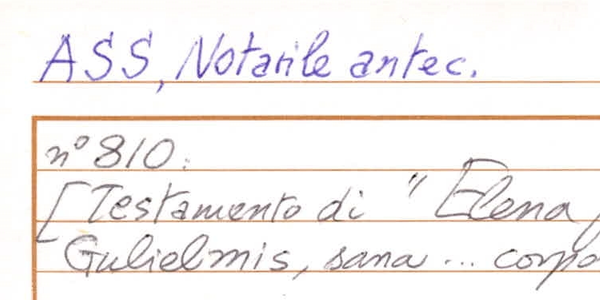 ASS, Notarile antec.
n° 810.
[Testamento di "Elena
Gulielmis, sana ... corpo